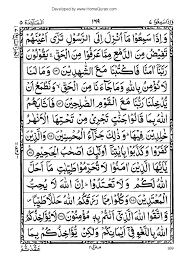 Developed by www.HomeQuran.com
وَاِذَا سَمِعُوۡا ۷ ۱۶۹ اَلۡمَآئِدَة ۵
وَاِذَا سَمِعُوۡا مَاۤ اُنۡزِلَ اِلَى الرَّسُوۡلِ تَرٰٓى اَعۡيُنَهُمۡ
تَفِيۡضُ مِنَ الدَّمۡعِ مِمَّا عَرَفُوۡا مِنَ الۡحَـقِّ‌ۚ يَقُوۡلُوۡنَ
رَبَّنَاۤ اٰمَنَّا فَاكۡتُبۡنَا مَعَ الشّٰهِدِيۡنَ‏ ﴿۸۳﴾ وَمَا لَـنَا
لَا نُؤۡمِنُ بِاللّٰهِ وَمَا جَآءَنَا مِنَ الۡحَـقِّۙ وَنَطۡمَعُ اَنۡ
يُّدۡخِلَـنَا رَبُّنَا مَعَ الۡقَوۡمِ الصّٰلِحِيۡنَ‏ ﴿۸۴﴾ فَاَثَابَهُمُ اللّٰهُ
بِمَا قَالُوۡا جَنّٰتٍ تَجۡرِىۡ مِنۡ تَحۡتِهَا الۡاَنۡهٰرُ
خٰلِدِيۡنَ فِيۡهَا‌ؕ وَذٰلِكَ جَزَآءُ الۡمُحۡسِنِيۡنَ‏ ﴿۸۵﴾ وَالَّذِيۡنَ
كَفَرُوۡا وَكَذَّبُوۡا بِاٰيٰتِنَاۤ اُولٰٓٮِٕكَ اَصۡحٰبُ الۡجَحِيۡمِ
يٰۤـاَيُّهَا الَّذِيۡنَ اٰمَنُوۡا لَا تُحَرِّمُوۡا طَيِّبٰتِ مَاۤ اَحَلَّ
اللّٰهُ لَـكُمۡ وَلَا تَعۡتَدُوۡا‌ؕ اِنَّ اللّٰهَ لَا يُحِبُّ
الۡمُعۡتَدِيۡنَ‏ ﴿۸۷﴾ وَكُلُوۡا مِمَّا رَزَقَكُمُ اللّٰهُ حَلٰلًا طَيِّبًا‌
وَّاتَّقُوا اللّٰهَ الَّذِىۡۤ اَنۡـتُمۡ بِهٖ مُؤۡمِنُوۡنَ‏ ﴿۸۸﴾ لَا يُؤَاخِذُكُمُ
اللّٰهُ بِاللَّغۡوِ فِىۡۤ اَيۡمَانِكُمۡ وَلٰـكِنۡ يُّؤَاخِذُكُمۡ بِمَا